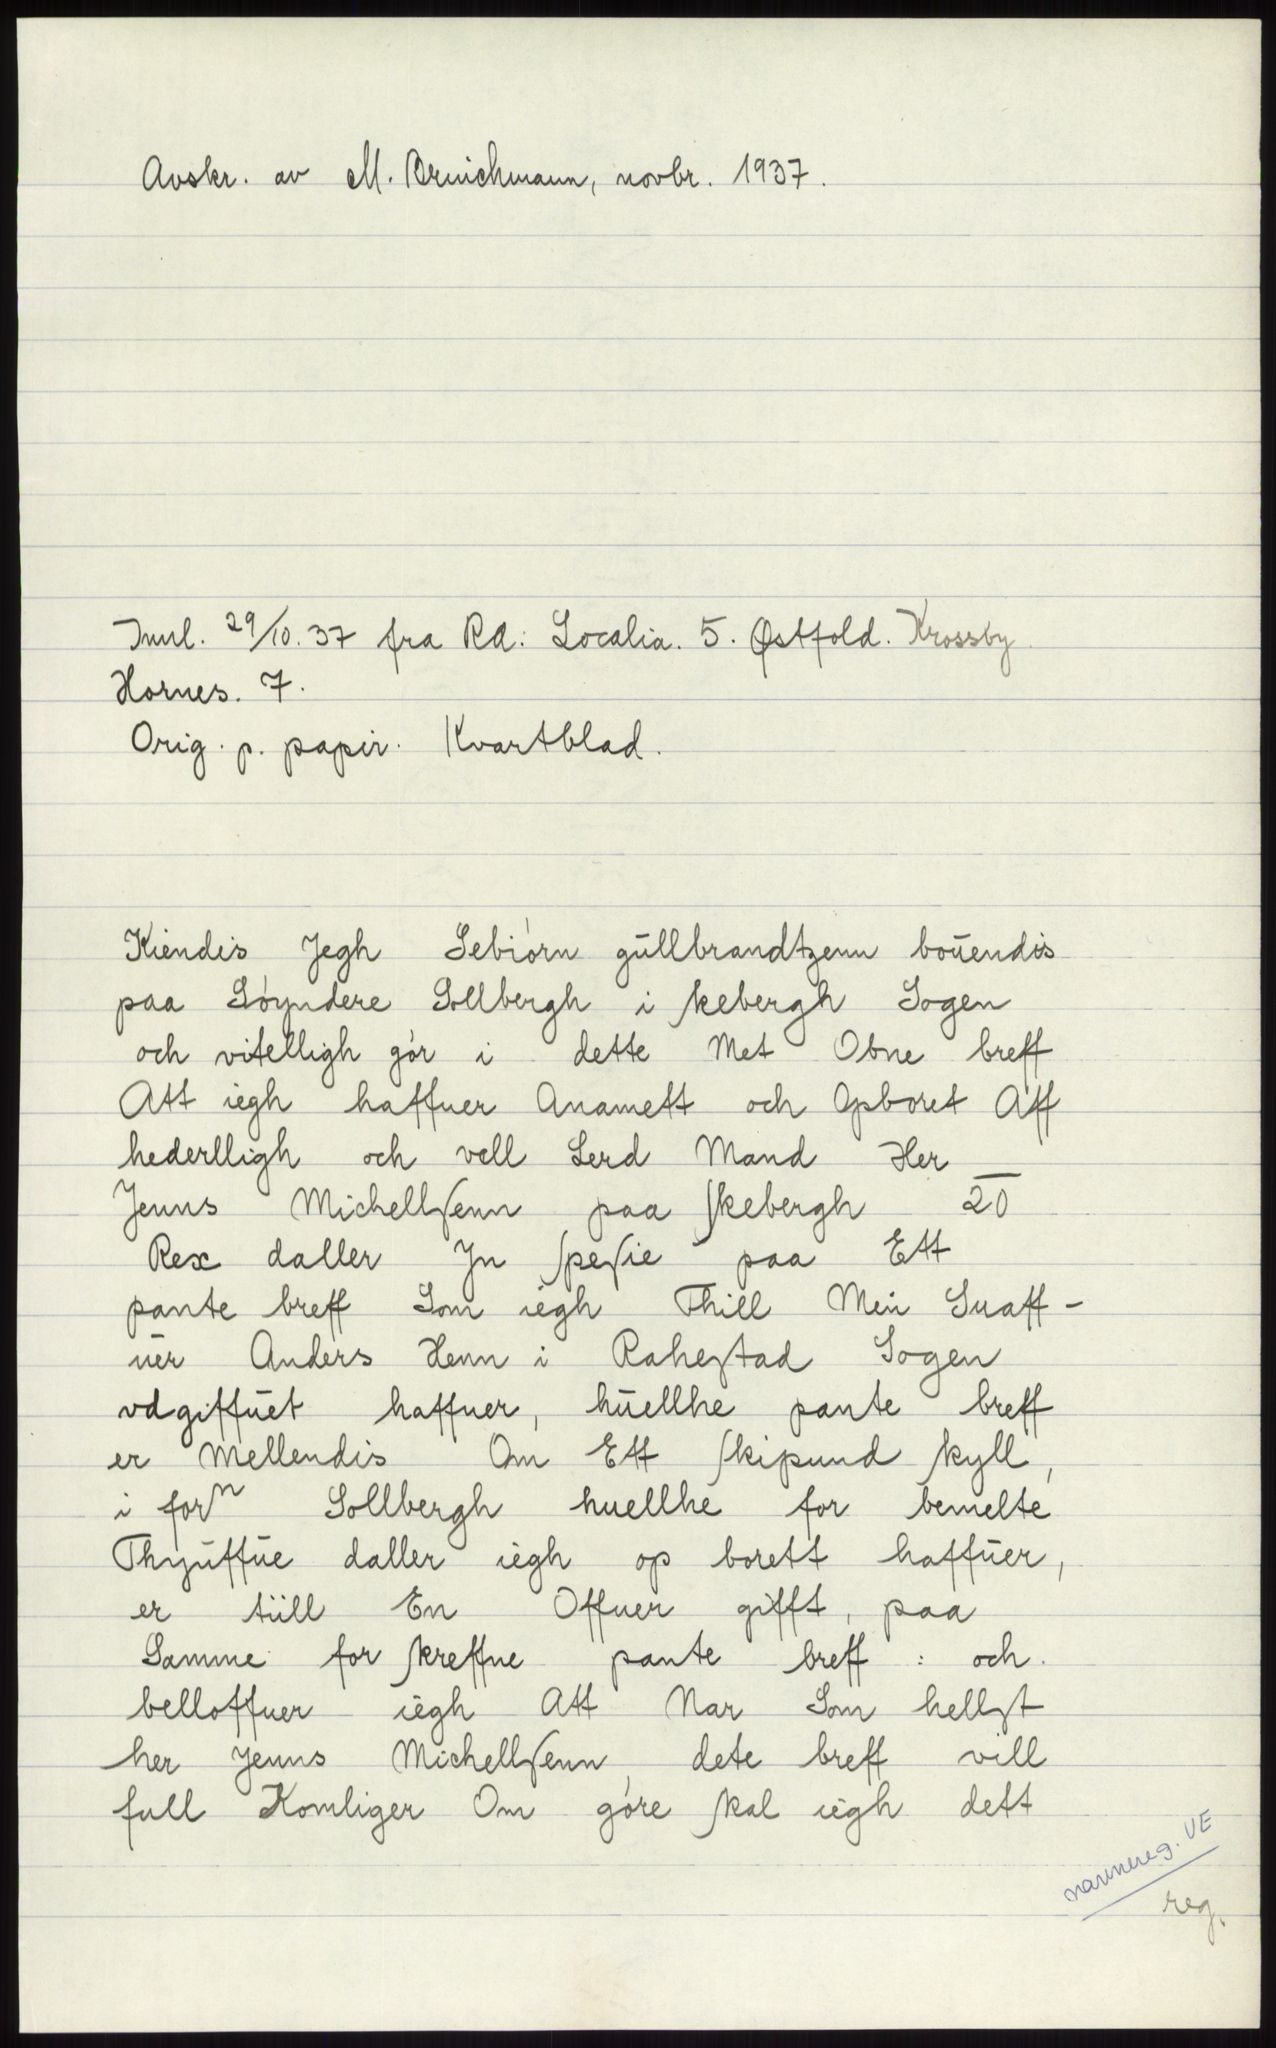 Avskr. av M. Brinchmann, novbr. 1937.
Innl. 29/10.37 fra RA: Localia. 5. Østfold. Krossby
Hornes. 7.
Orig. p. papir. Kvartblad.
Kiendis Jegh Sebiórn gűllbrandtzenn boűendis
paa Sóyndere Sollbergh i skebergh Sogen
och vitelligh gór i dette Met Obne breff
Att iegh haffuer Anamett och Opboret Aff
hederlligh och vell Lerd Mand Her
Jenns Michellsenn paa skebergh 20
Rex daller Jn spesie paa Ett
pante breff Som iegh Thill Min Suaff-
űer Anders Henn i Rahestad Sogen
vdgiffűet haffuer, hűellhe pante breff
er Mellendis Om Ett skipund skyll,
i forn Sollbergh huellhe for bemelte
Thyűffűe daller iegh op borett haffűer,
er tiill En Offuer gifft, paa
Samme for skreffne pante breff : och
belloffuer iegh Att Nar Som hellst
her Jenns Michellsenn, dete breff vill
full Komliger Om góre skal iegh dett
navnereg. VE
reg.